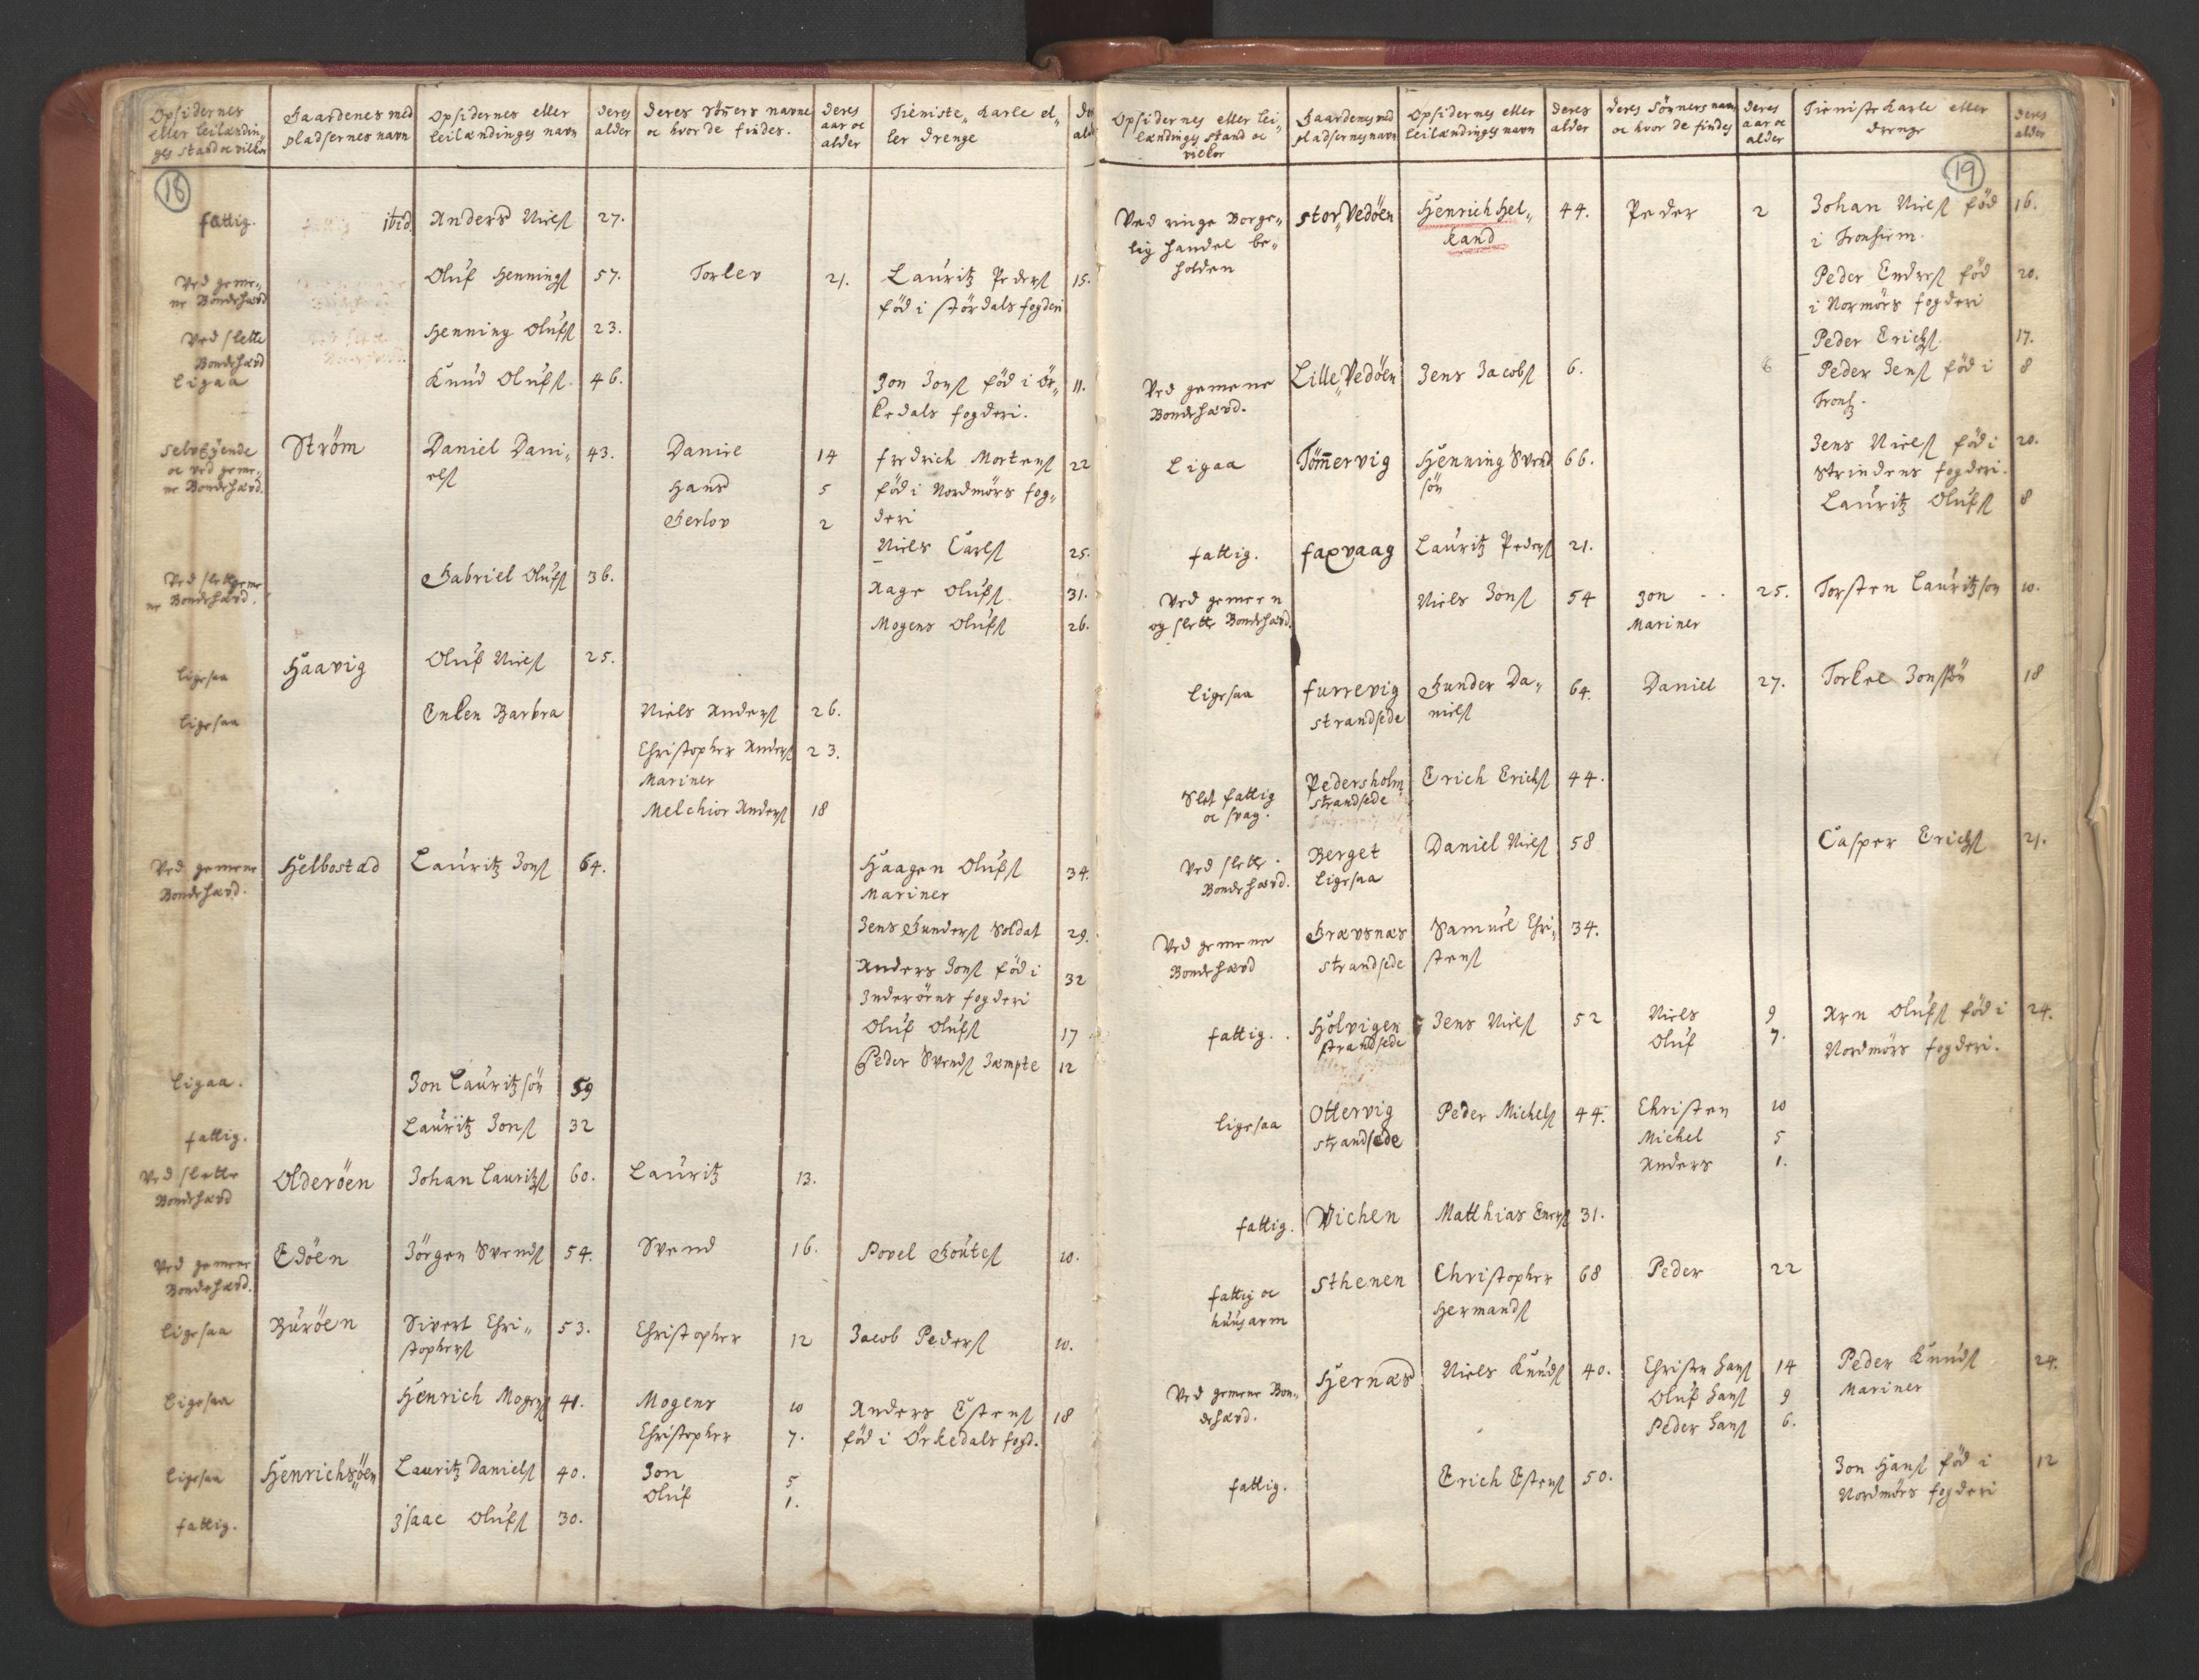 Opsidernes eller leilændin„ ges stand oc vilkor | Gaardenes med pladsernes navn | Opsidernes eller leilændinges navn | deres alder | deres sönners navne oc hvor de findes. | deres aar oc alder | Tieniste„ karle el„ ler drenge
18
fattig. | ibid. | Anders Nielß | 27.
Ved geme„ | Oluf Henningß | 57. | Torlev | 21. | Lauritz Pederß | 15.
ne Bondehærd | föd i stördals fogderi
Ved slette | Henning Olufß | 23.
Bondehærd
Ligaa | Knud Olufß. | 46. | Jon Jonß föd i Ör„ | 11.
kedals fogderi.
selvEyende | Ström | Daniel Dani„ | 43. | Daniel | 14 | fredrich Mortenß | 22
oc ved geme„ | elß | Hans | 5 | föd i Nordmörs fog„
ne Bondehærd. | Gerlov | 2 | deri
Niels Carlß | 25.
Ved slet geme | Gabriel Olufß | 36. | Aage Olufß | 31.
ne Bondehærd. | Mogens Olufß | 26.
ligesaa | Haavig | Oluf Nielß | 25.
ligesaa | Enken Barbra | Niels Anderß | 26.
Christopher Anderß | 23.
Mariner
Melchior Anderß | 18
Ved gemene | Helbostad | Lauritz Jonß | 64. | Haagen Olufß | 34.
Bondehærd. | Mariner
Jens Gunderß Soldat | 29.
Anders Jonß föd i | 32
Inderöens fogderi
Oluf Olufß | 17
Peder Svendß Jæmpte | 12
Ligaa. | Jon Lauritzsön | 59
fattig. | Lauritz Jonß | 32
Ved slette | Olderöen | Johan Lauritzß | 60. | Lauritz | 13.
Bondehærd
Ved gemene | Edöen | Jörgen Svendß | 54. | Svend | 16. | Povel Gouteß | 10.
Bondehærd.
Ligesaa | Buröen | Sivert Chri„ | 53. | Christopher | 12 | Jacob Pederß | 10.
stopherß
Ligesaa | Henrich Mogenß | 41. | Mogens | 10 | Anders Estenß | 18
Christopher | 7. | föd i Örkedals fogd.
ligesaa | Henrichsöen | Lauritz Danielß | 40. | Jon | 5
Oluf | 1.
fattig. | Isaac Olufß | 30.

Opsidernes eller lei„ lændinges stand oc vilkor | Gaardenes med pladsernes navn | Opsidernes eller leilændinges navn | deres alder | deres Sönners navn oc hvor de findes | deres aar oc alder | Tieniste karle eller drenge | deres alder
19
Ved ringe Borge„ | stor„Vedöen | Henrich Hel„ | 44. | Peder | 2 | Johan Nielß föd | 16.
lig handel be„ | kand | i Tronhiem.
holden | Peder Endreß föd | 20.
i Normörs fogderi
Peder Erichß. | 17.
Ved gemene | Lille„Vedöen | Jens Jacobß | 6. | 6 | Peder Jenß föd i | 8
Bondehærd. | Tronh.
Ligaa | Tömmervig | Henning Svend | 66. | Jens Nielß föd i | 20.
sön | Strindens fogderi.
Lauritz Olufß | 8
fattig. | faxvaag | Lauritz Pederß | 21.
Ved gemeen | Niels Jonß | 54 | Jon | 25. | Torsten Lauritzson | 10.
og slette Bondehærd. | Mariner
ligesaa | furrevig | Gunder Da„ | 64. | Daniel | 27. | Torkel Jonssön | 18
strandsede | nielß
Slet fattig | Pedersholm | Erich Erichß | 44.
oc svag. | strandsede
Ved slette | Berget | Daniel Nielß | 58 | Casper Erichß | 21.
Bondehærd. | ligesaa
Ved gemene | Grævsnæs | Samuel Chri„ | 34.
Bondehærd | strandsede | stenß
fattig. | Holvigen | Jens Nielß | 52 | Niels | 9 | Arn Olufß föd i | 24.
strandsede | Oluf | 7. | Nordmörs fogderi.
ligesaa | Ottervig | Peder Michelß | 44. | Christen | 10
strandsede | Michel | 5
Anders | 1.
fattig. | Vichen | Matthias Enerß | 31.
fattig oc | sthenen | Christopher | 68 | Peder | 22
huusarm | Hermandß
Ved gemene Bon„ | Hernæs | Niels Knudß | 40. | Christen Hanß | 14 | Peder Knudß | 24.
dehærd. | Oluf Hanß | 9 | Mariner
Peder Hanß | 6.
fattig. | Erich Estenß | 50. | Jon Hanß föd i | 12
Nordmörs fogderi